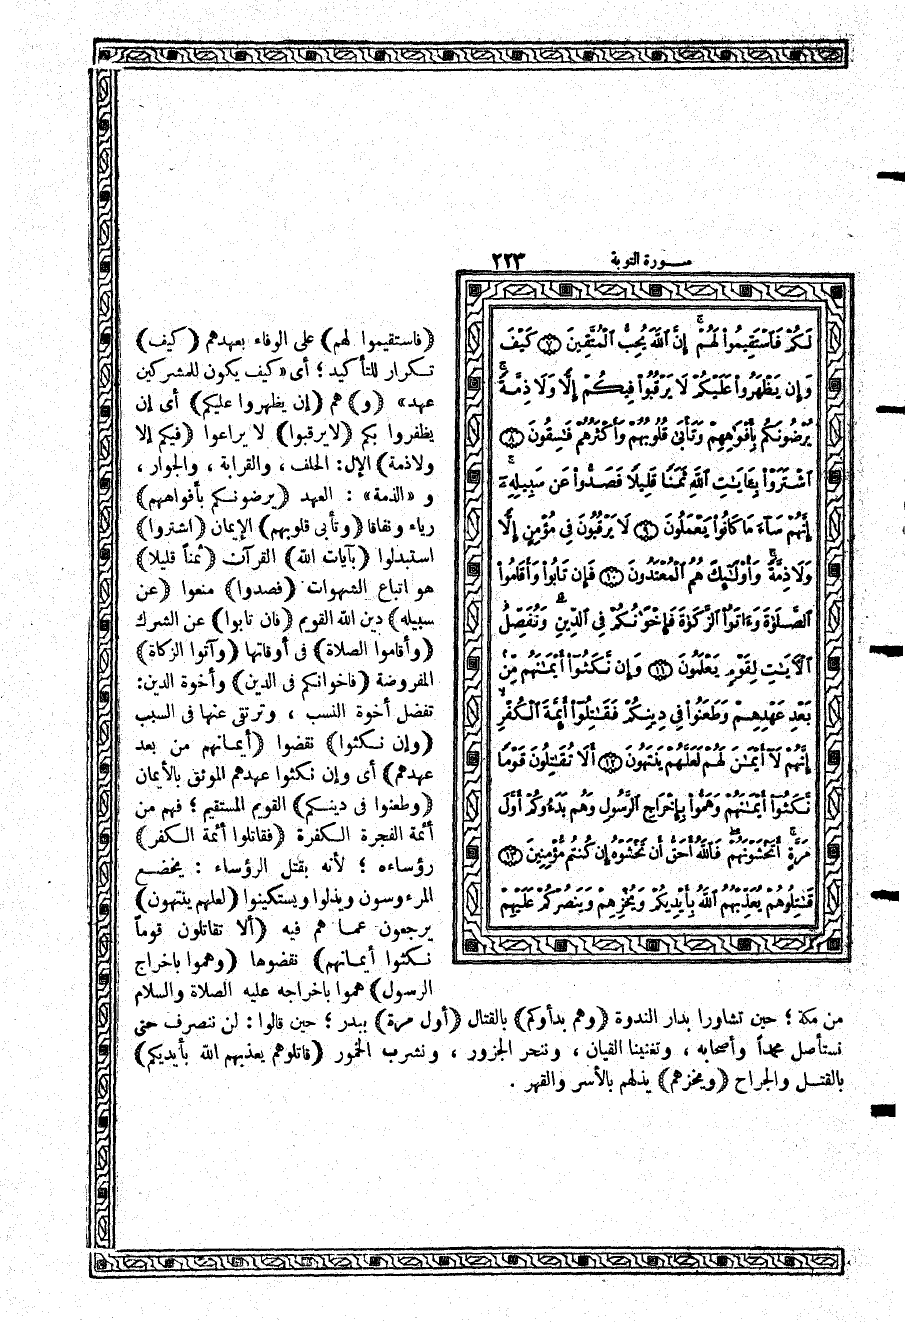 سورة التوبة ٢٢٣
لَكُمْ فَاسْتَقِيمُوا۟ لَهُمْ ۚ إِنَّ ٱللَّهَ يُحِبُّ ٱلْمُتَّقِينَ ٧ كَيْفَ
وَإِن يَظْهَرُوا۟ عَلَيْكُمْ لَا يَرْقُبُوا۟ فِيكُمْ إِلًّا وَلَا ذِمَّةً ۚ
يُرْضُونَكُم بِأَفْوَٰهِهِمْ وَتَأْبَىٰ قُلُوبُهُمْ وَأَكْثَرُهُمْ فَٰسِقُونَ ٨
ٱشْتَرَوْا۟ بِـَٔايَٰتِ ٱللَّهِ ثَمَنًا قَلِيلًا فَصَدُّوا۟ عَن سَبِيلِهِۦٓ ۚ
إِنَّهُمْ سَآءَ مَا كَانُوا۟ يَعْمَلُونَ ٩ لَا يَرْقُبُونَ فِى مُؤْمِنٍ إِلًّا
وَلَا ذِمَّةً ۚ وَأُو۟لَٰٓئِكَ هُمُ ٱلْمُعْتَدُونَ ١٠ فَإِن تَابُوا۟ وَأَقَامُوا۟
ٱلصَّلَوٰةَ وَءَاتَوُا۟ ٱلزَّكَوٰةَ فَإِخْوَٰنُكُمْ فِى ٱلدِّينِ ۗ وَنُفَصِّلُ
ٱلْـَٔايَٰتِ لِقَوْمٍ يَعْلَمُونَ ١١ وَإِن نَّكَثُوٓا۟ أَيْمَٰنَهُم مِّنۢ
بَعْدِ عَهْدِهِمْ وَطَعَنُوا۟ فِى دِينِكُمْ فَقَٰتِلُوٓا۟ أَئِمَّةَ ٱلْكُفْرِ ۙ
إِنَّهُمْ لَآ أَيْمَٰنَ لَهُمْ لَعَلَّهُمْ يَنتَهُونَ ١٢ أَلَا تُقَٰتِلُونَ قَوْمًا
نَّكَثُوٓا۟ أَيْمَٰنَهُمْ وَهَمُّوا۟ بِإِخْرَاجِ ٱلرَّسُولِ وَهُم بَدَءُوكُمْ أَوَّلَ
مَرَّةٍ ۚ أَتَخْشَوْنَهُمْ ۚ فَٱللَّهُ أَحَقُّ أَن تَخْشَوْهُ إِن كُنتُم مُّؤْمِنِينَ ١٣
قَٰتِلُوهُمْ يُعَذِّبْهُمُ ٱللَّهُ بِأَيْدِيكُمْ وَيُخْزِهِمْ وَيَنصُرْكُمْ عَلَيْهِمْ
(فاستقيموا لهم) على الوفاء بعهدهم (كيف)
تكرار للتأكيد ؛ أى «كيف يكون للمشركين
عهد» (و) هم (إن يظهروا عليكم) أى إن
يظفروا بكم (لايرقبوا) لا يراعوا (فيكم إلا
ولاذمة) الإل: الحلف ، والقرابة ، والجوار ،
و «الذمة» : العهد (يرضونكم بأفواههم)
رياء ونفاقا (وتأبى قلوبهم) الإيمان (اشتروا)
استبدلوا (بآيات الله) القرآن (ثمناً قليلا)
هو اتباع الشهوات (فصدوا) منعوا (عن
سبيله) دين الله القويم (فان تابوا) عن الشرك
(وأقاموا الصلاة) فى أوقاتها (وآتوا الزكاة)
المفروضة (فاخوانكم فى الدين) وأخوة الدين:
تفضل أخوة النسب ، وترتق عنها فى السبب
(وإن نكثوا) نقضوا (أيمانهم من بعد
عهدهم) أى وإن نكثوا عهدهم الموثق بالأيمان
(وطعنوا فى دينكم) القويم المستقيم ؛ فهم من
أئمة الفجرة الكفرة (فقاتلوا أئمة الكفر)
رؤساءه ؛ لأنه بقتل الرؤساء : يخضع
المرءوسون ويذلوا ويستكينوا (لعلهم ينتهون)
يرجعون عما هم فيه (ألا تقاتلون قوماً
نكثوا أيمانهم) نقضوها (وهموا باخراج
الرسول) هموا باخراجه عليه الصلاة والسلام
من مكة ؛ حين تشاورا بدار الندوة (وهم بدأوكم) بالقتال (أول مرة) ببدر ؛ حين قالوا : لن ننصرف حتى
نستأصل محمداً وأصحابه ، وتغنينا القيان ، وننحر الجزور ، ونشرب الخمور (قاتلوهم يعذبهم الله بأيديكم)
بالقتل والجراح (ويخزهم) يذلهم بالأسر والقهر .